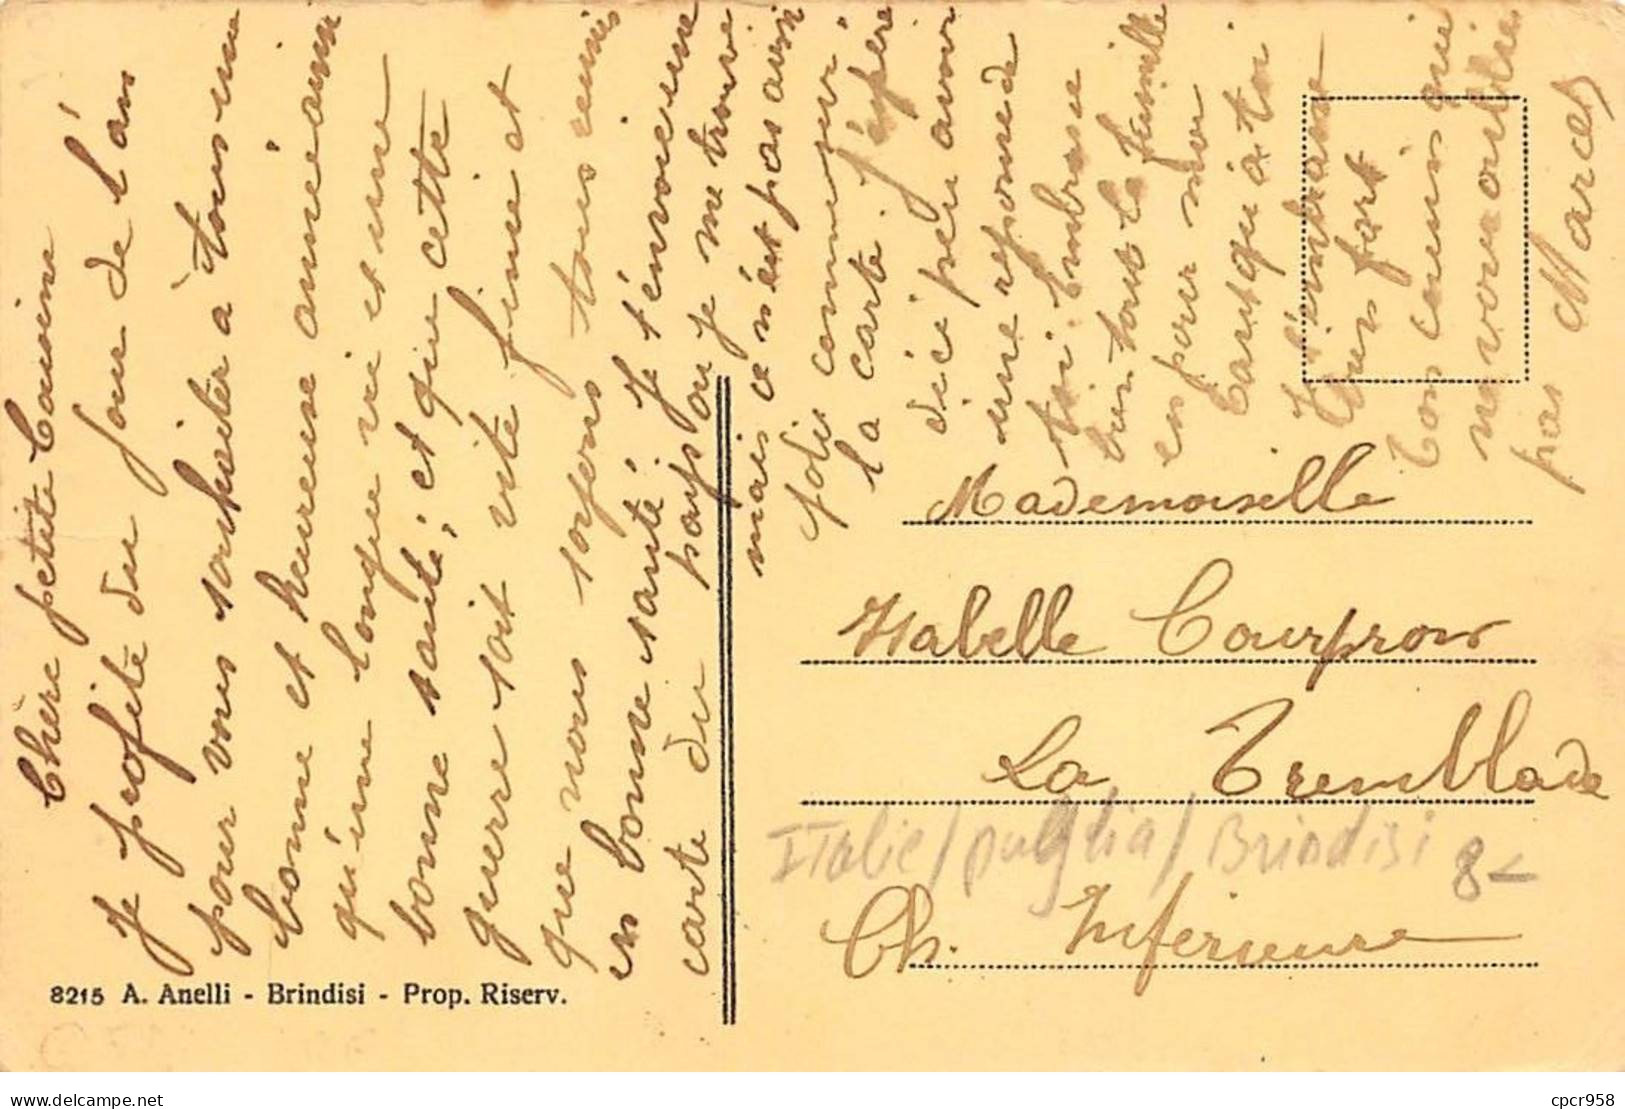 Chère petite Cousine
Je profite du jour de l'an
pour vous souhaiter à tous une
bonne et heureuse année ainsi
qu'une longue vie et une
bonne santé, et que cette
guerre soit vite finie et
que nous soyens tous reunis
en bonne santé. Je t'envoie une
carte du pays ou je me trouve
mais ce n'est pas aussi
joli comme sur
la carte. J'éspère
d'ici peu avoir
une reponse de
toi. Embrasse
bien tout la famille
en pour moi
tant qu'a toi
Je t'embrasse
bien fort
Ton cousin qui
ne vous oublie
pas Marcel
Mademoiselle
Isabelle Courpron
La Tremblade
Italie / puglia / Brindisi 8-
Ch. Inferieure
8215 A. Anelli - Brindisi - Prop. Riserv.
delcampe.net
cpcr958